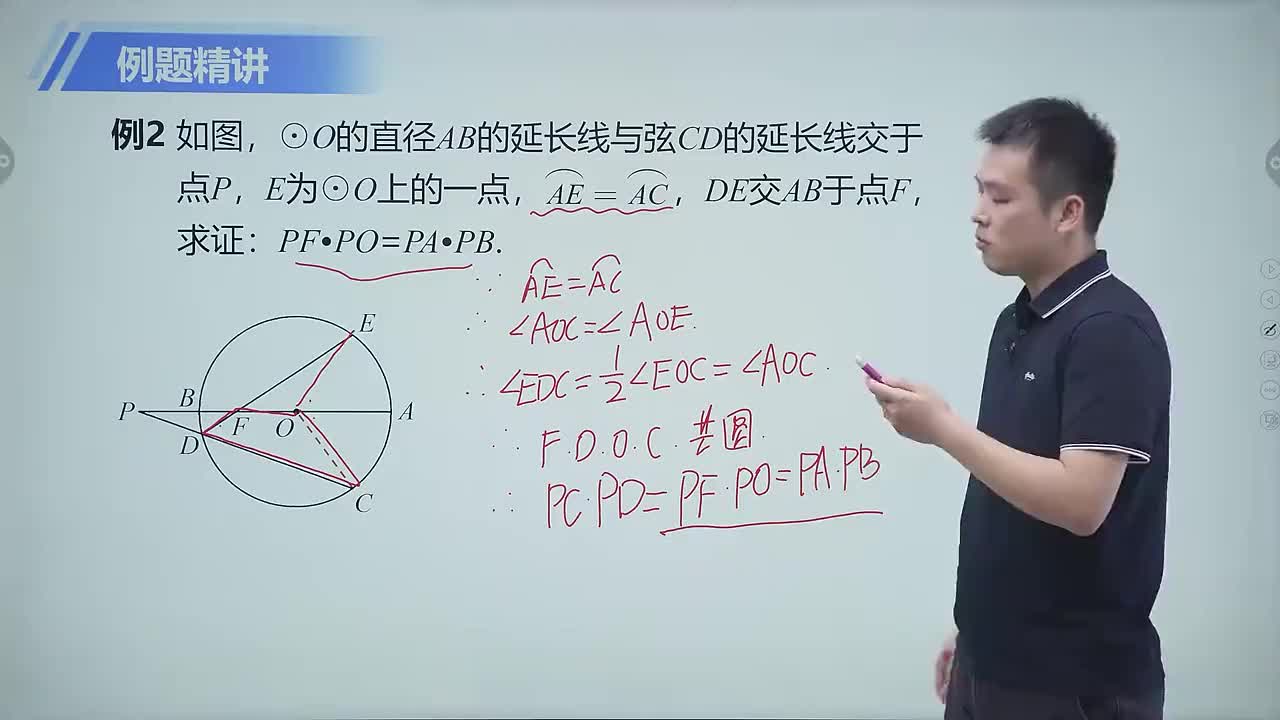 例题精讲
例2 如图，⊙O的直径AB的延长线与弦CD的延长线交于
点P，E为⊙O上的一点，AE = AC，DE交AB于点F，
求证：PF•PO=PA•PB.
∵ AE=AC
∴ ∠AOC=∠AOE.
∴ ∠EDC=1/2∠EOC=∠AOC.
∴ F.D.O.C.共圆.
∴ PC·PD=PF·PO=PA·PB
E
P B F O A
D
C